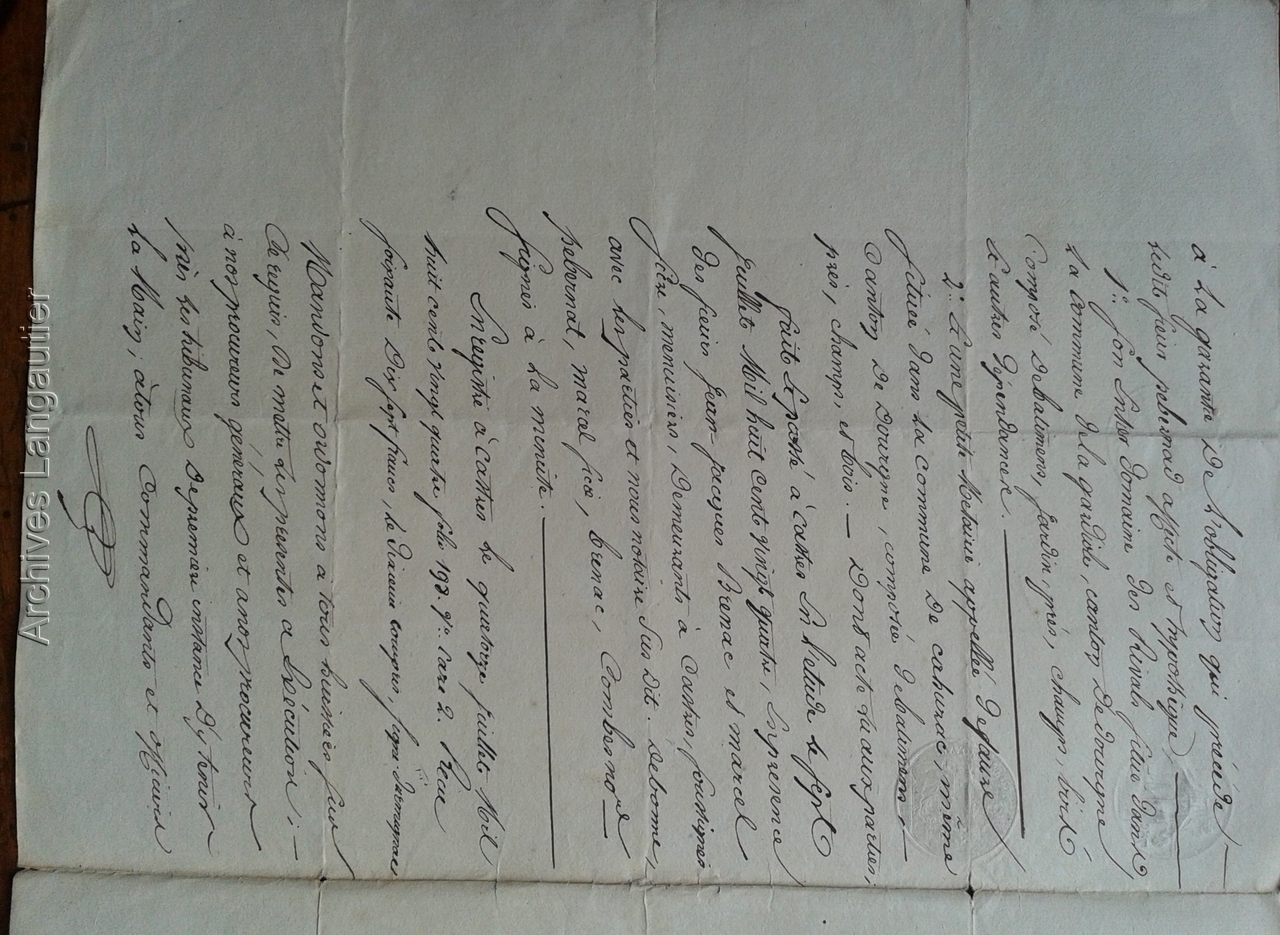 à La garantie De L'obligation qui précède —
Ledit sieur pebernad affecte et hypothèque —
1.° Son Entier Domaine Des Rivals situé Dans
La Commune De la gardiole, canton De dourgne
Composé De batimens, jardin, prés, champs, bois &
D'autres Dépendances.
2.° Et une petite Metairie appellée De faure
située Dans La commune De cahuzac, même
Canton De Dourgne, composé De batimens
prés, champs, et bois. — Dont acte La aux parties,
fait & passé à castres En L'etude Le sept
juillet Mil huit cents vingt quatre, En presence
Des sieurs Jean-jacques Brenac et marcel
fice, menuisiers, Demeurants à Castres, soussignés
avec Les parties et nous notaire sus dit. Debonne,
pebernat, marcel fice, brenac, Combes no.re
signés à La minute.
Enregistré à castres Le quatorze juillet Mil
huit cents vingt quatre, folio 198 r.° case 2. Reçu
soixante Dix sept francs, Le Dixieme compris, signé
Mandons et ordonnons a tous huissiers sur
Ce requis, De mettre Les presentes a Exécution; —
à nos procureurs généraux et a nos procureurs
près Les tribunaux De premiere instance D'y tenir
La Main; à tous Commandants et officiers
Archives Langautier